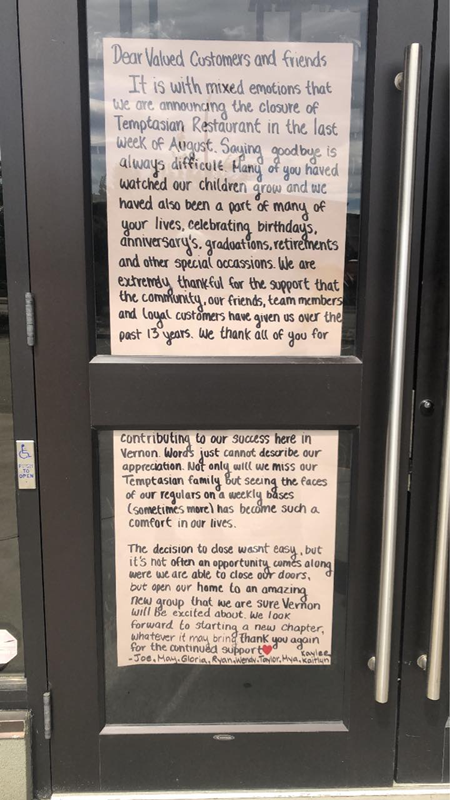 Dear Valued Customers and friends
It is with mixed emotions that
we are announcing the closure of
Temptasian Restaurant in the last
week of August. Saying goodbye is
always difficult. Many of you haved
watched our children grow and we
haved also been a part of many of
your lives, celebrating birthdays,
anniversary's, graduations, retirements
and other special occassions. We are
extremely thankful for the support that
the community, our friends, team members
and loyal customers have given us over the
past 13 years. We thank all of you for
contributing to our success here in
Vernon. Words just cannot describe our
appreciation. Not only will we miss our
Temptasian family but seeing the faces
of our regulars on a weekly bases
(sometimes more) has become such a
comfort in our lives.
The decision to close wasnt easy, but
it's not often an opportunity comes along
were we are able to close our doors,
but open our home to an amazing
new group that we are sure Vernon
will be excited about. We look
forward to starting a new chapter,
whatever it may bring thank you again
for the continued support
Kaylee
-Joe, May, Gloria, Ryan, Wendy, Taylor, Mya, Kaitlyn
TO
OPEN